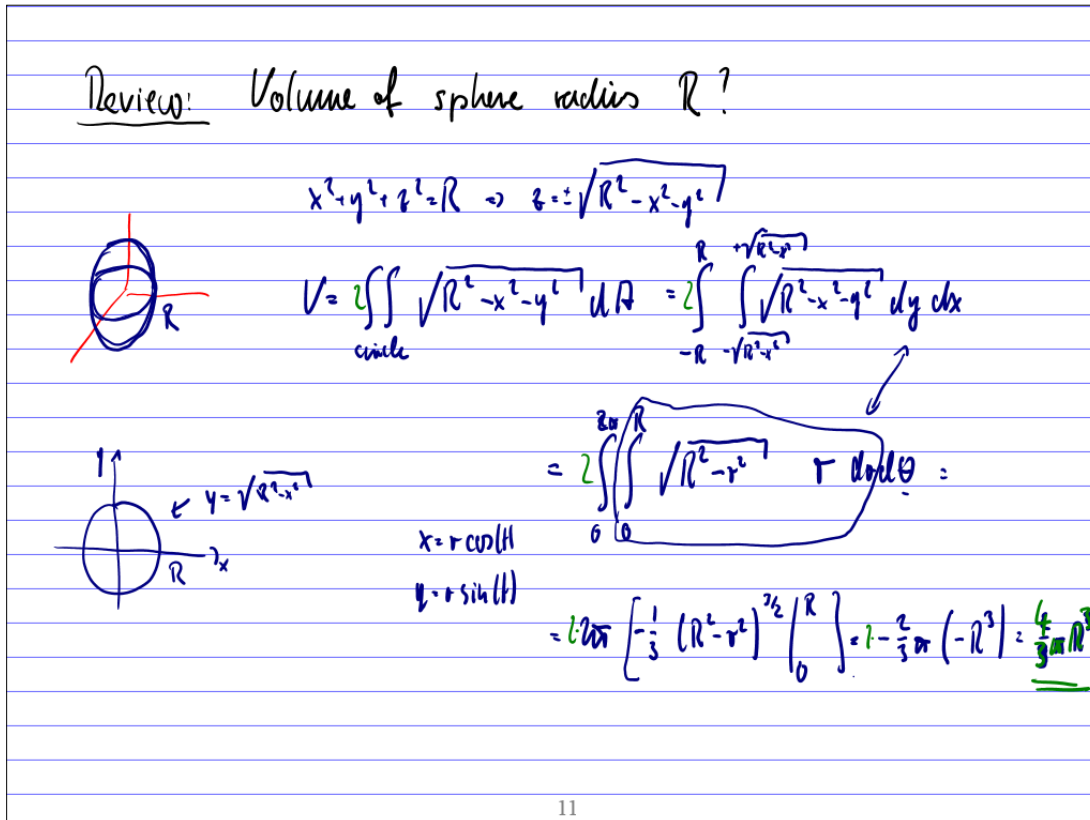 Review: Volume of sphere radius R?
x²+y²+z²=R ⇒ z=±√(R²-x²-y²)
R
V= 2∫∫_circle √(R²-x²-y²) dA = 2∫_{-R}^{R} ∫_{-√(R²-x²)}^{+√(R²-x²)} √(R²-x²-y²) dy dx
= 2∫_0^{2π} ∫_0^R √(R²-r²) r dr dθ =
y
y=√(R²-x²)
R x
x=r cos(t)
y=r sin(t)
= 2·2π [-1/3 (R²-r²)^{3/2} |_0^R] = 2·-2/3 π (-R³) = 4/3 π R³
11